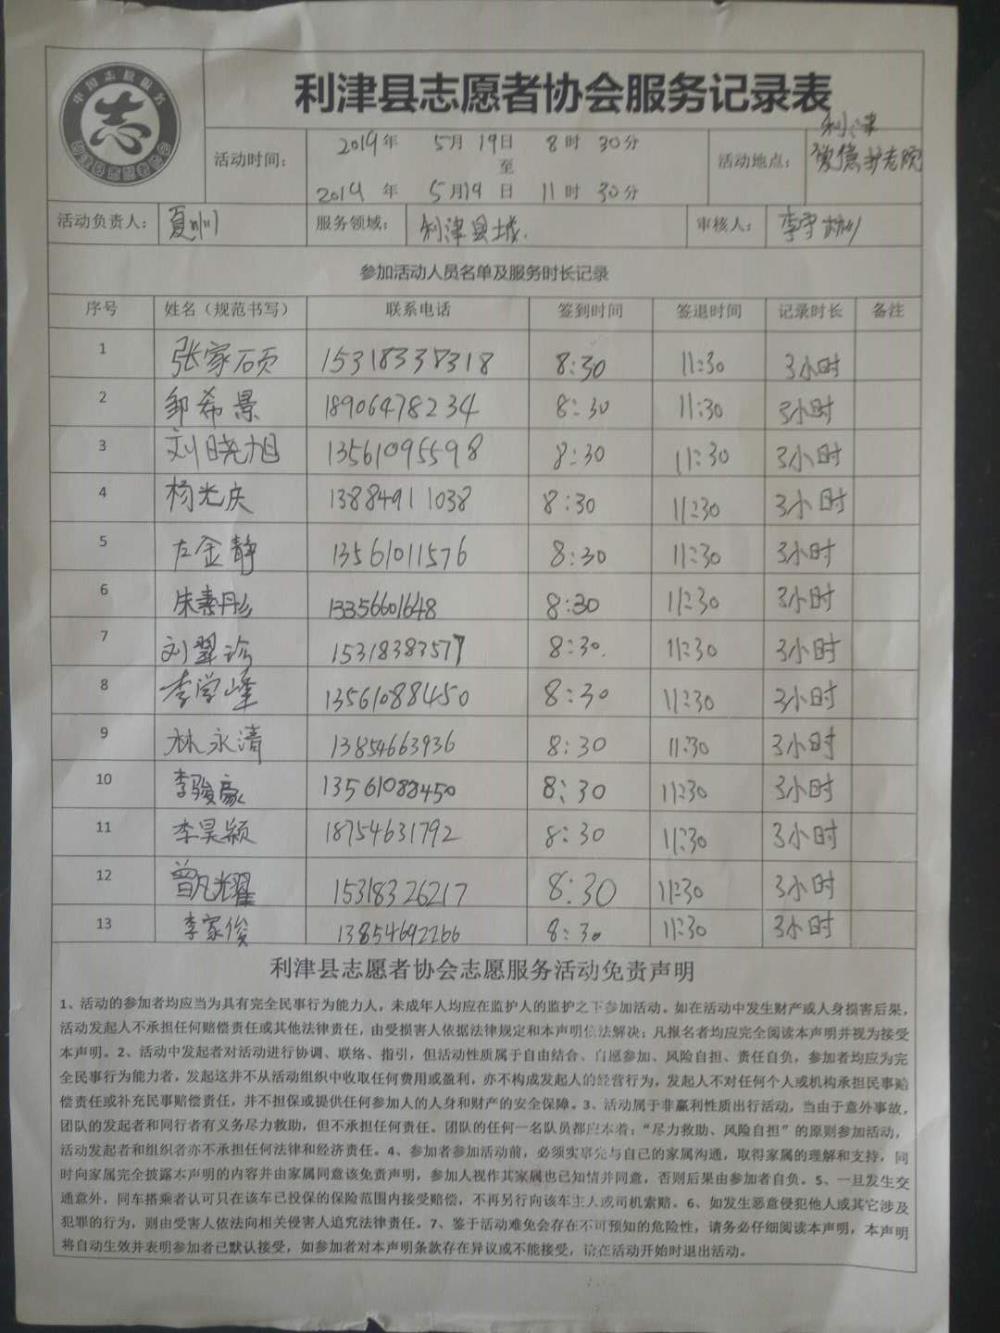 中国志愿服务
志
利津县志愿者协会服务记录表
活动时间： 2019年 5月19日 8时 30分
至
2019年 5月19日 11时 30分
活动地点： 利津 贺德养老院
活动负责人： 夏州 服务领域： 利津县城. 审核人： 李守
参加活动人员名单及服务时长记录
序号 姓名（规范书写） 联系电话 签到时间 签退时间 记录时长 备注
1 张家硕 15318338318 8:30 11:30 3小时
2 邹希景 18906478234 8:30 11:30 3小时
3 刘晓旭 13561095598 8:30 11:30 3小时
4 杨光庆 13884911038 8:30 11:30 3小时
5 左金静 13561011576 8:30 11:30 3小时
6 朱素彤 13356601648 8:30 11:30 3小时
7 刘翠珍 15318383577 8:30. 11:30 3小时
8 李学峰 13561088450 8:30 11:30 3小时
9 林永清 13854663936 8:30 11:30 3小时
10 李骏豪 13561088450 8:30 11:30 3小时
11 李昊颖 18754631792 8:30 11:30 3小时
12 曾凡耀 15318326217 8:30 11:30 3小时
13 李家俊 13854692266 8:30 11:30 3小时
利津县志愿者协会志愿服务活动免责声明
1、活动的参加者均应当为具有完全民事行为能力人，未成年人均应在监护人的监护之下参加活动。如在活动中发生财产或人身损害后果，
活动发起人不承担任何赔偿责任或其他法律责任，由受损害人依据法律规定和本声明依法解决；凡报名者均应完全阅读本声明并视为接受
本声明。2、活动中发起者对活动进行协调、联络、指引，但活动性质属于自由结合、自愿参加、风险自担、责任自负，参加者均应为完
全民事行为能力者，发起这并不从活动组织中收取任何费用或盈利，亦不构成发起人的经营行为，发起人不对任何个人或机构承担民事赔
偿责任或补充民事赔偿责任，并不担保或提供任何参加人的人身和财产的安全保障。3、活动属于非赢利性质出行活动，当由于意外事故，
团队的发起者和同行者有义务尽力救助，但不承担任何责任。团队的任何一名队员都应本着：“尽力救助、风险自担”的原则参加活动，
活动发起者和组织者亦不承担任何法律和经济责任。4、参加者参加活动前，必须实事先与自己的家属沟通，取得家属的理解和支持，同
时向家属完全披露本声明的内容并由家属同意该免责声明，参加人视作其家属也已知情并同意，否则后果由参加者自负。5、一旦发生交
通意外，同车搭乘者认可只在该车已投保的保险范围内接受赔偿，不再另行向该车主人或司机索赔。6、如发生恶意侵犯他人或其它涉及
犯罪的行为，则由受害人依法向相关侵害人追究法律责任。7、鉴于活动难免会存在不可预知的危险性，请务必仔细阅读本声明，本声明
将自动生效并表明参加者已默认接受，如参加者对本声明条款存在异议或不能接受，请在活动开始时退出活动。